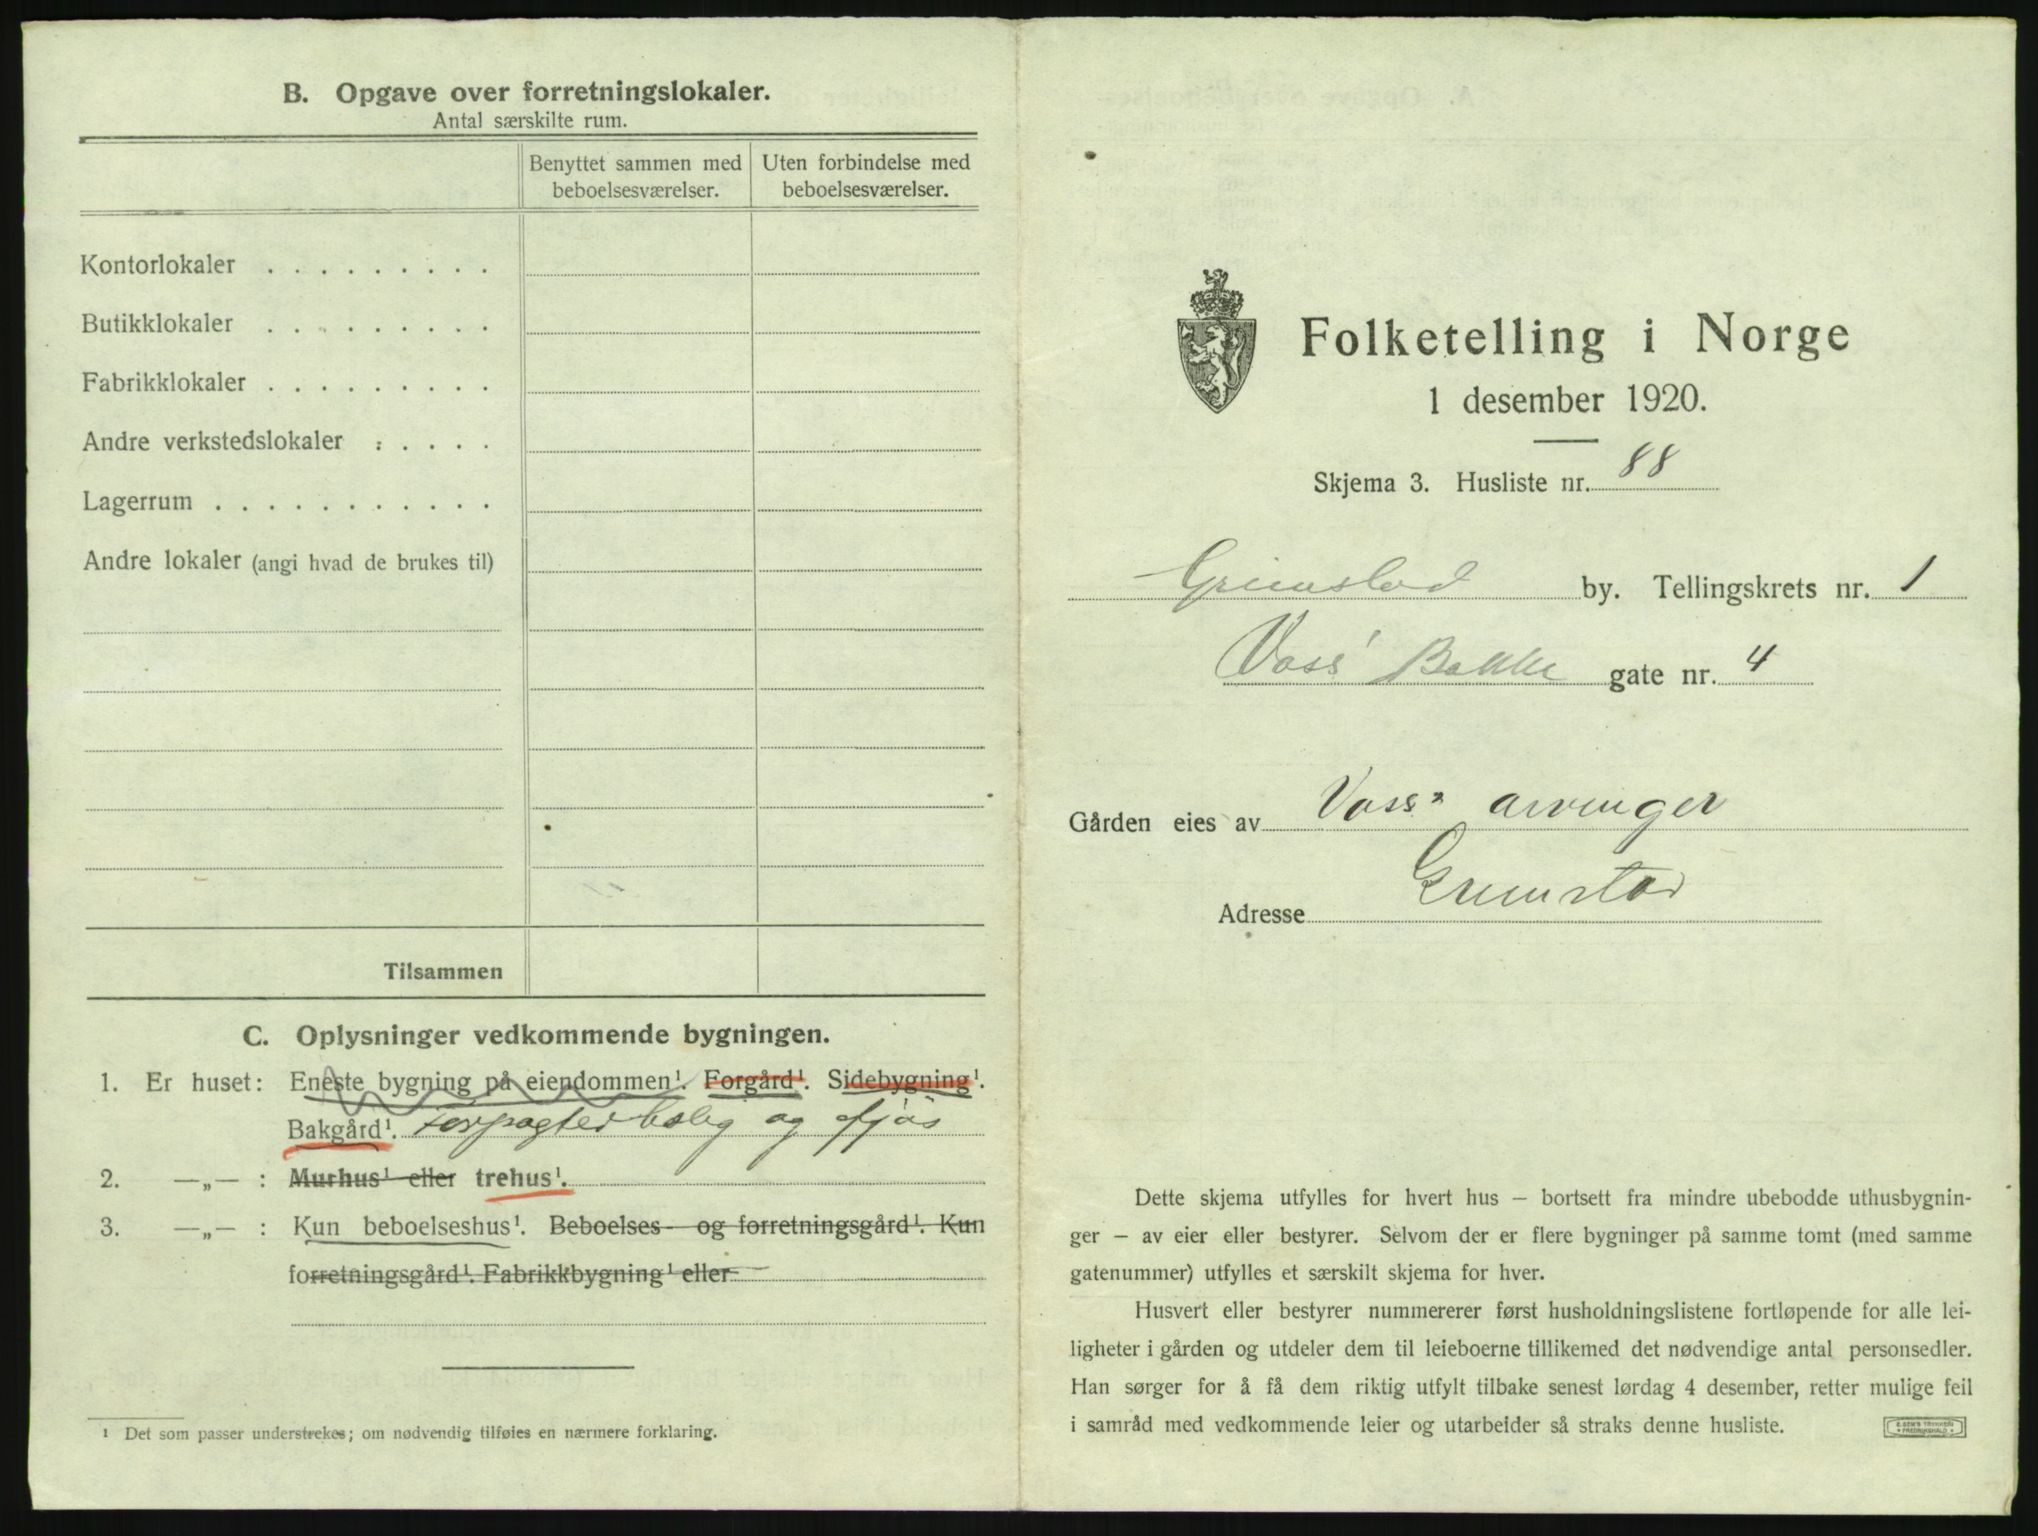 B. Opgave over forretningslokaler.
Antal særskilte rum.
Benyttet sammen med beboelsesværelser.
Uten forbindelse med beboelsesværelser.
Kontorlokaler . . . . . . . . .
Butikklokaler . . . . . . . . .
Fabrikklokaler . . . . . . . . .
Andre verkstedslokaler . . . . .
Lagerrum . . . . . . . . . . .
Andre lokaler (angi hvad de brukes til)
Tilsammen
C. Oplysninger vedkommende bygningen.
1. Er huset: Eneste bygning på eiendommen¹. Forgård¹. Sidebygning¹.
Bakgård¹. Forpagterbolig og fjøs
2. —„— : Murhus¹ eller trehus¹.
3. —„— : Kun beboelseshus¹. Beboelses- og forretningsgård¹. Kun
forretningsgård¹. Fabrikkbygning¹ eller
¹ Det som passer understrekes; om nødvendig tilføies en nærmere forklaring.
Folketelling i Norge
1 desember 1920.
Skjema 3. Husliste nr. 88
Grimstad by. Tellingskrets nr. 1
Voss' Bakke gate nr. 4
Gården eies av Voss' arvinger
Adresse Grimstad
Dette skjema utfylles for hvert hus – bortsett fra mindre ubebodde uthusbygnin-
ger – av eier eller bestyrer. Selvom der er flere bygninger på samme tomt (med samme
gatenummer) utfylles et særskilt skjema for hver.
Husvert eller bestyrer nummererer først husholdningslistene fortløpende for alle lei-
ligheter i gården og utdeler dem til leieboerne tillikemed det nødvendige antal personsedler.
Han sørger for å få dem riktig utfylt tilbake senest lørdag 4 desember, retter mulige feil
i samråd med vedkommende leier og utarbeider så straks denne husliste.